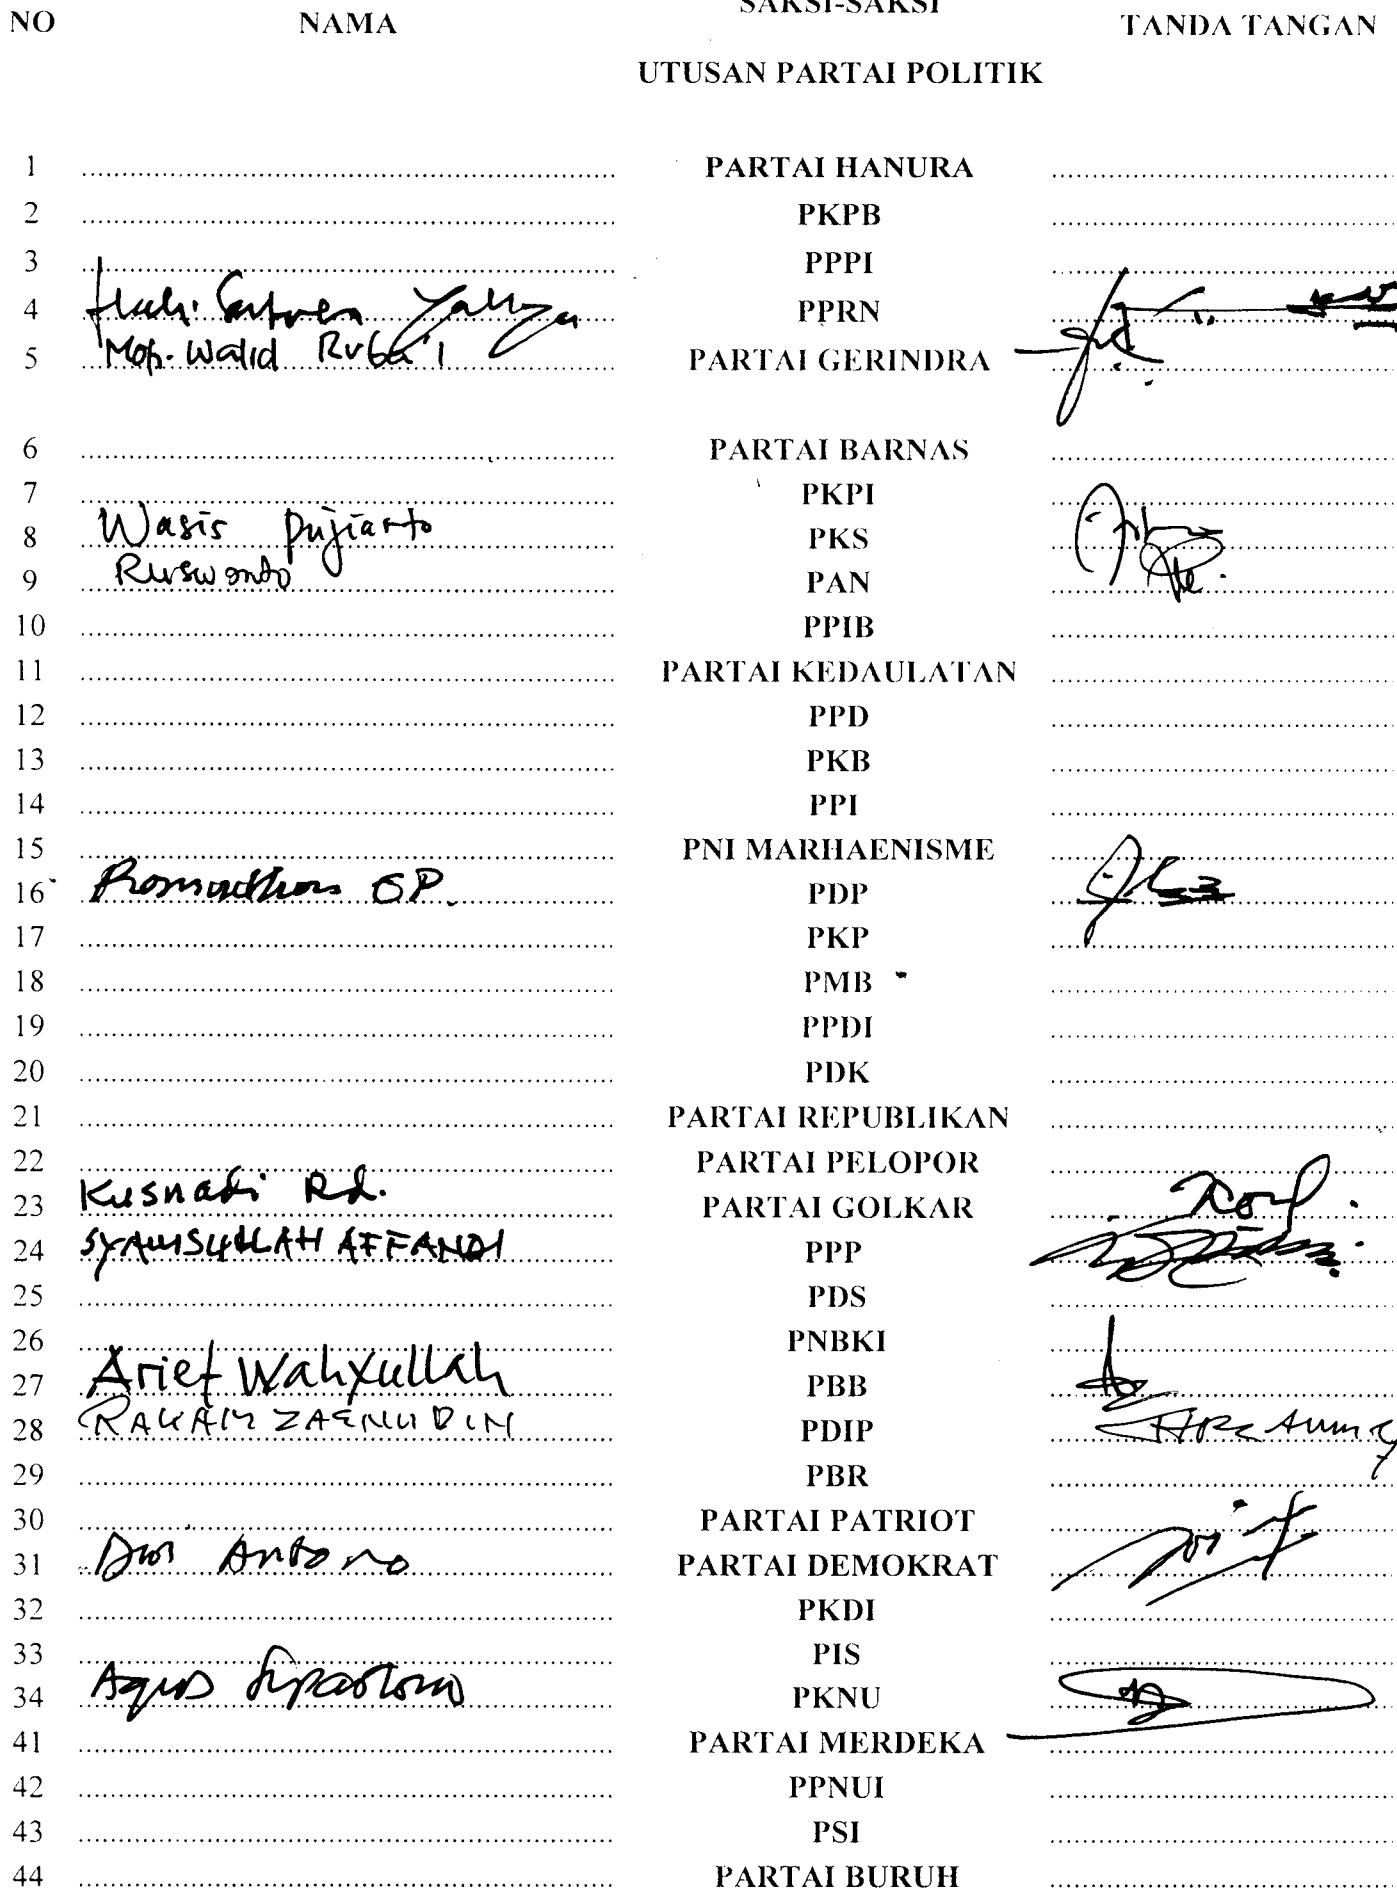 SAKSI-SAKSI
NO NAMA TANDA TANGAN
UTUSAN PARTAI POLITIK
1 PARTAI HANURA
2 PKPB
3 PPPI
4 Yahya PPRN
5 Moh. Walid Ruba'i PARTAI GERINDRA
6 PARTAI BARNAS
7 PKPI
8 Wasis Pujiarto PKS
9 Ruswanto PAN
10 PPIB
11 PARTAI KEDAULATAN
12 PPD
13 PKB
14 PPI
15 PNI MARHAENISME
16 PDP
17 PKP
18 PMB
19 PPDI
20 PDK
21 PARTAI REPUBLIKAN
22 PARTAI PELOPOR
23 Kusnadi Rd. PARTAI GOLKAR
24 SYAMSULLAH AFFANDI PPP
25 PDS
26 PNBKI
27 Arief Wahyullah PBB
28 ZAENUDIN PDIP
29 PBR
30 PARTAI PATRIOT
31 Dwi Antono PARTAI DEMOKRAT
32 PKDI
33 PIS
34 Agus PKNU
41 PARTAI MERDEKA
42 PPNUI
43 PSI
44 PARTAI BURUH